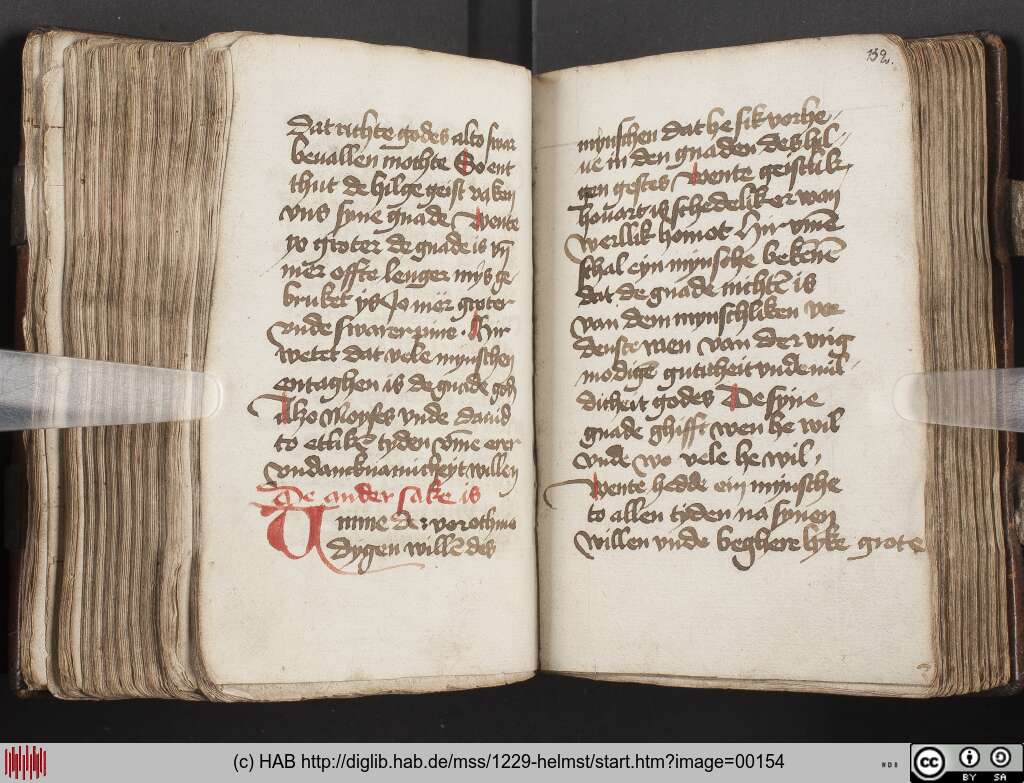 Dat richte godes alto swar
beuallen mochte So ent
thut de hilge geist vaken
vns syne gnade Wente
yo groter de gnade is vn̄
mer offte lenger mys ge
bruket ys Jo mer groter
vnde swarer pine. Hir
wetet dat vele mynschen
entaghen is de gnade gods
Alzo Moyses vnde dauid
to etlikē tyden vm̄e erer
vndancknamicheyt willen
De ander sake is
Umme der vorothmo
dygen willē des
132.
mynschen dat he sik vorhe
ue in den gnaden des hil
gen gestes Wente geistlik
houart is schedeliker wan
werllik homot Hir vm̄e
schal eyn mynsche bekēnē
dat de gnade nichtē is
van dem mynschliken vor
denste men van der vrig
modigē gutticheit vnde mil
dicheit godes De syne
gnade ghifft wen he wil
vnde wo vele he wil
Wente hedde ein mynsche
to allen tyden na synen
willen vnde beghere lyke grote
(c) HAB http://diglib.hab.de/mss/1229-helmst/start.htm?image=00154
WDB
cc BY SA